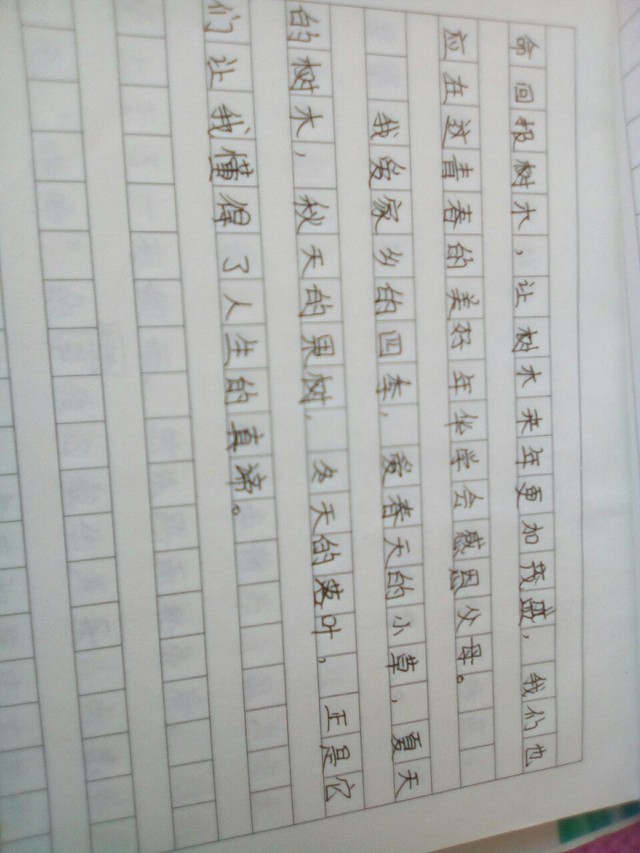 命回报树木，让树木来年更加茂盛，我们也
应在这青春的美好年华学会感恩父母。
我爱家乡的四季，爱春天的小草，夏天
的树木，秋天的果树，冬天的落叶。正是它
们让我懂得了人生的真谛。